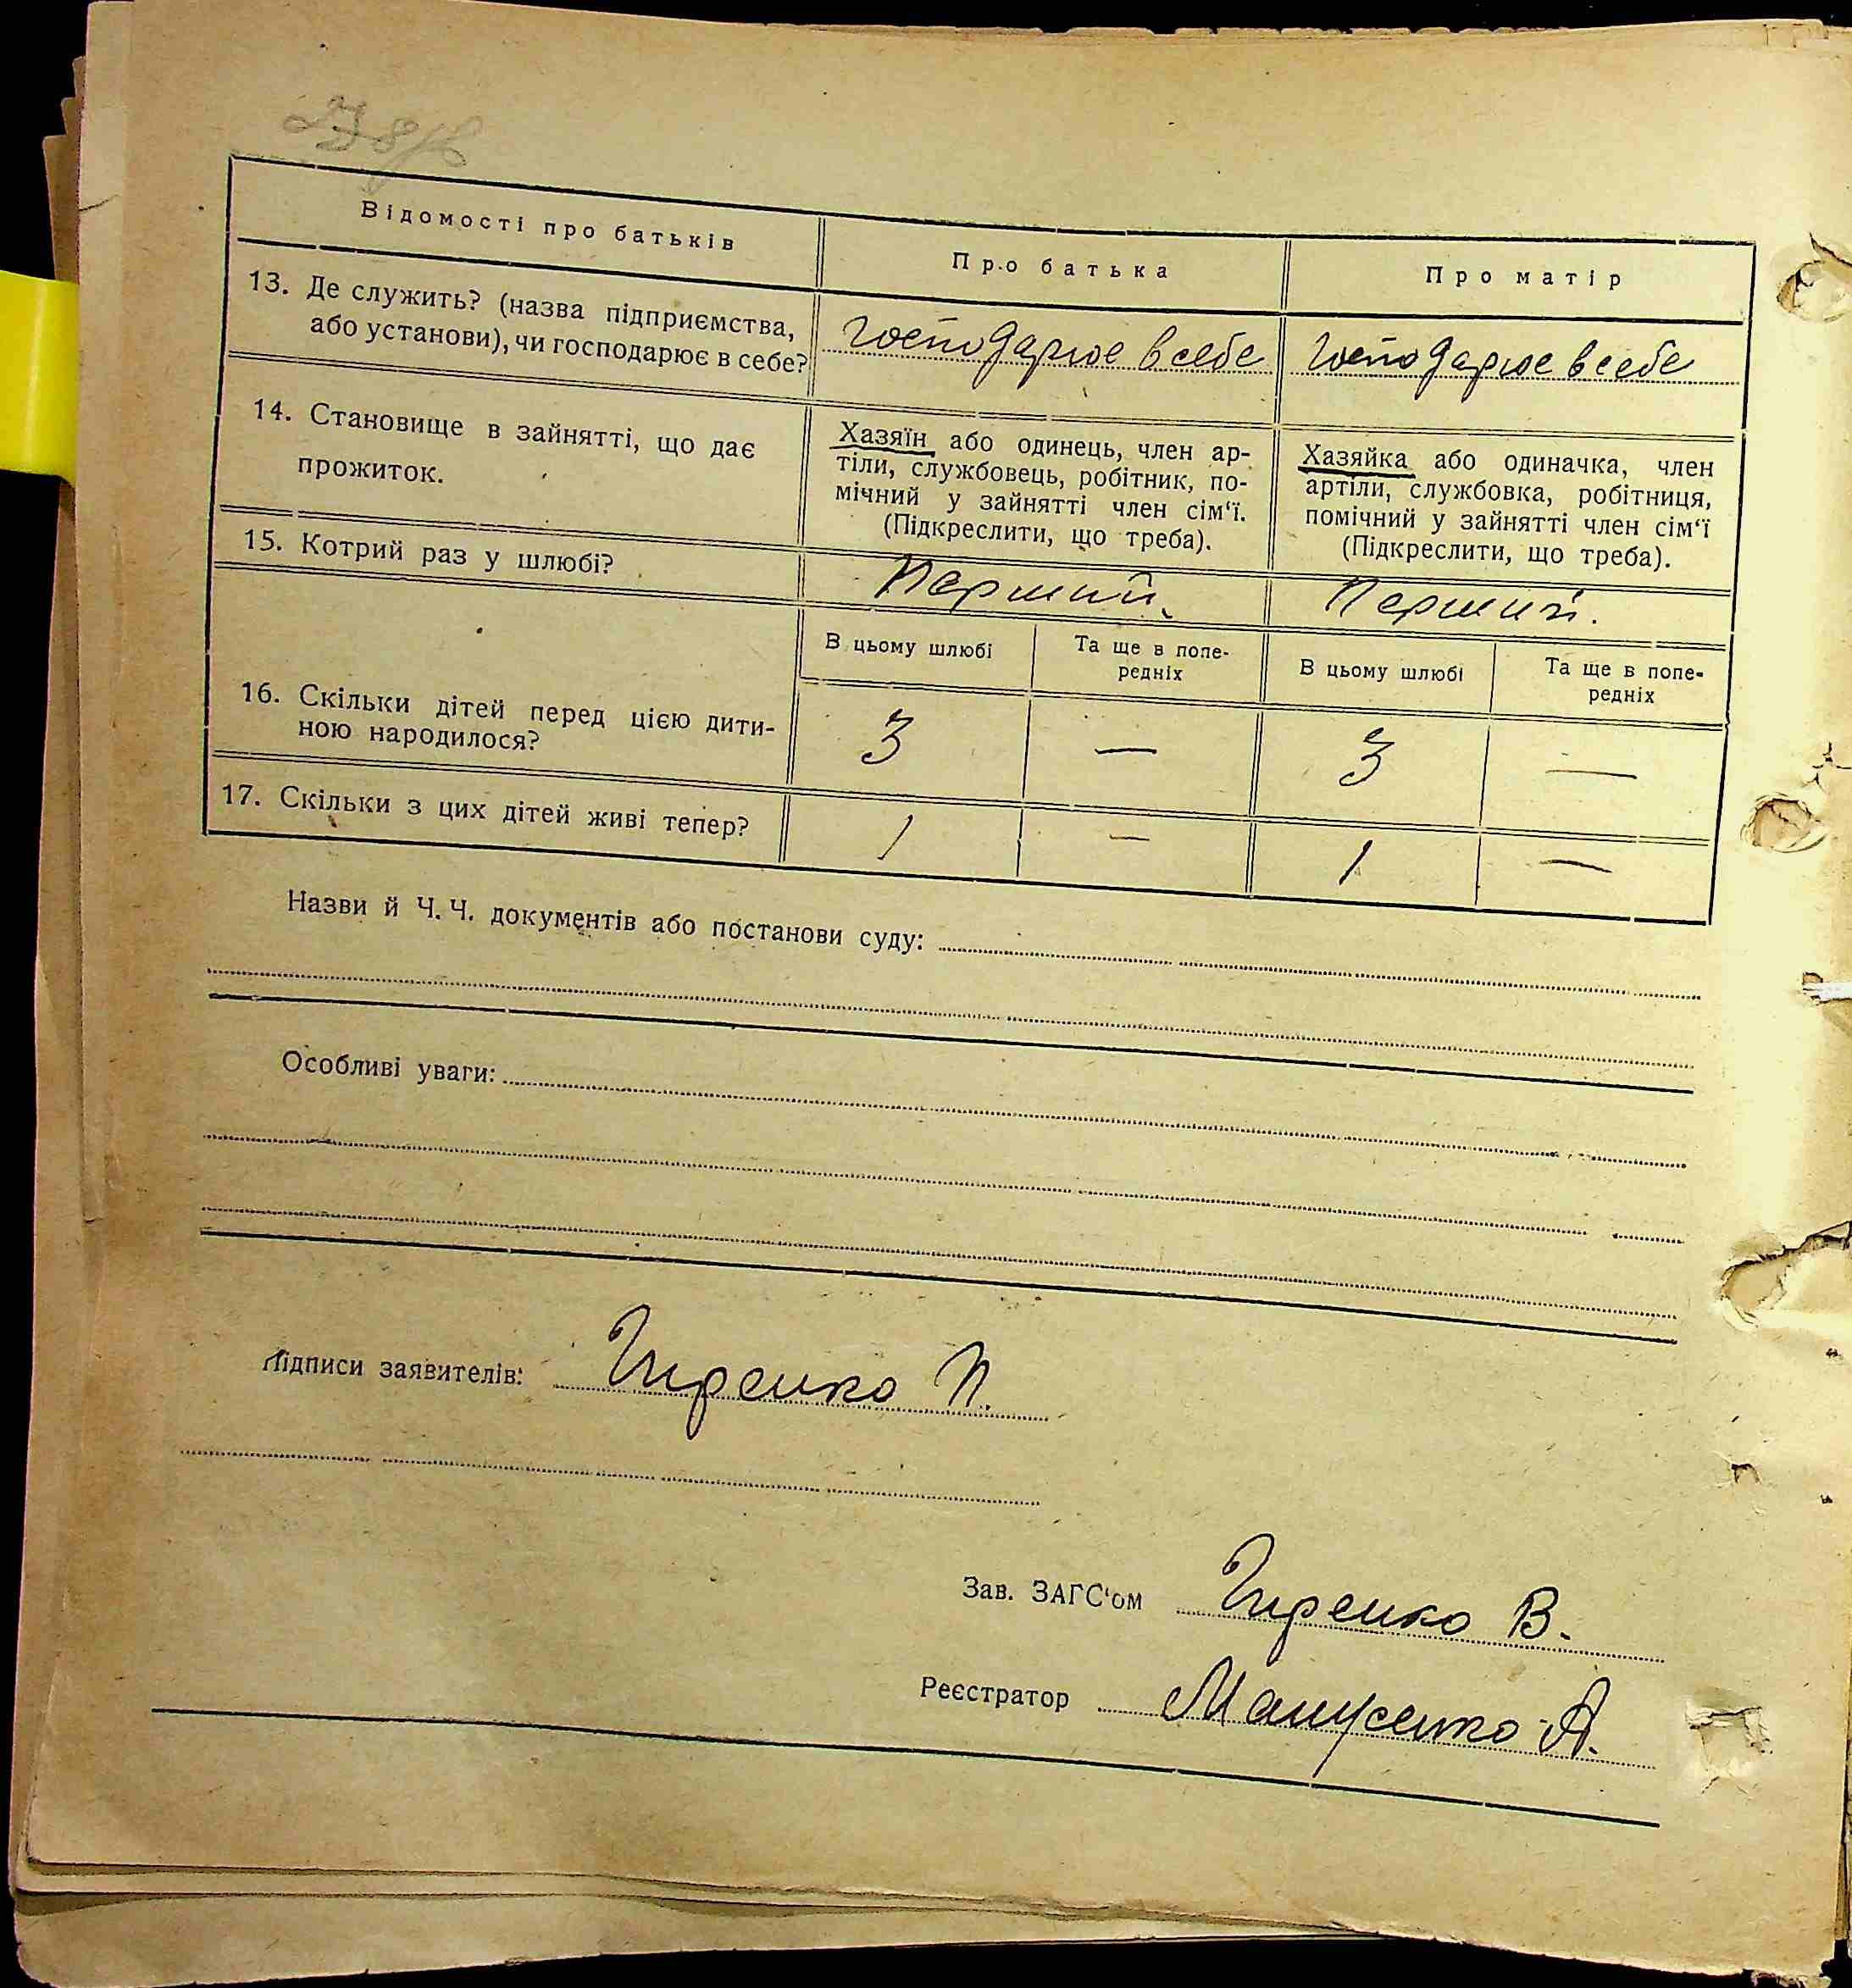 Відомості про батьків
Про батька
Про матір
13. Де служить? (назва підприємства,
або установи), чи господарює в себе?
господарює в себе
господарює в себе
14. Становище в зайнятті, що дає
прожиток.
Хазяїн або одинець, член ар-
тіли, службовець, робітник, по-
мічний у зайнятті член сім‘ї.
(Підкреслити, що треба).
Хазяйка або одиначка, член
артіли, службовка, робітниця,
помічний у зайнятті член сім‘ї
(Підкреслити, що треба).
15. Котрий раз у шлюбі?
Перший
Перший.
В цьому шлюбі
Та ще в попе-
редніх
В цьому шлюбі
Та ще в попе-
редніх
16. Скільки дітей перед цією дити-
ною народилося?
3 — 3 —
17. Скільки з цих дітей живі тепер?
1 — 1 —
Назви й Ч. Ч. документів або постанови суду:
Особливі уваги:
Підписи заявителів: Гиренко П.
Зав. ЗАГС‘ом Гиренко В.
Реєстратор Манусенко А.